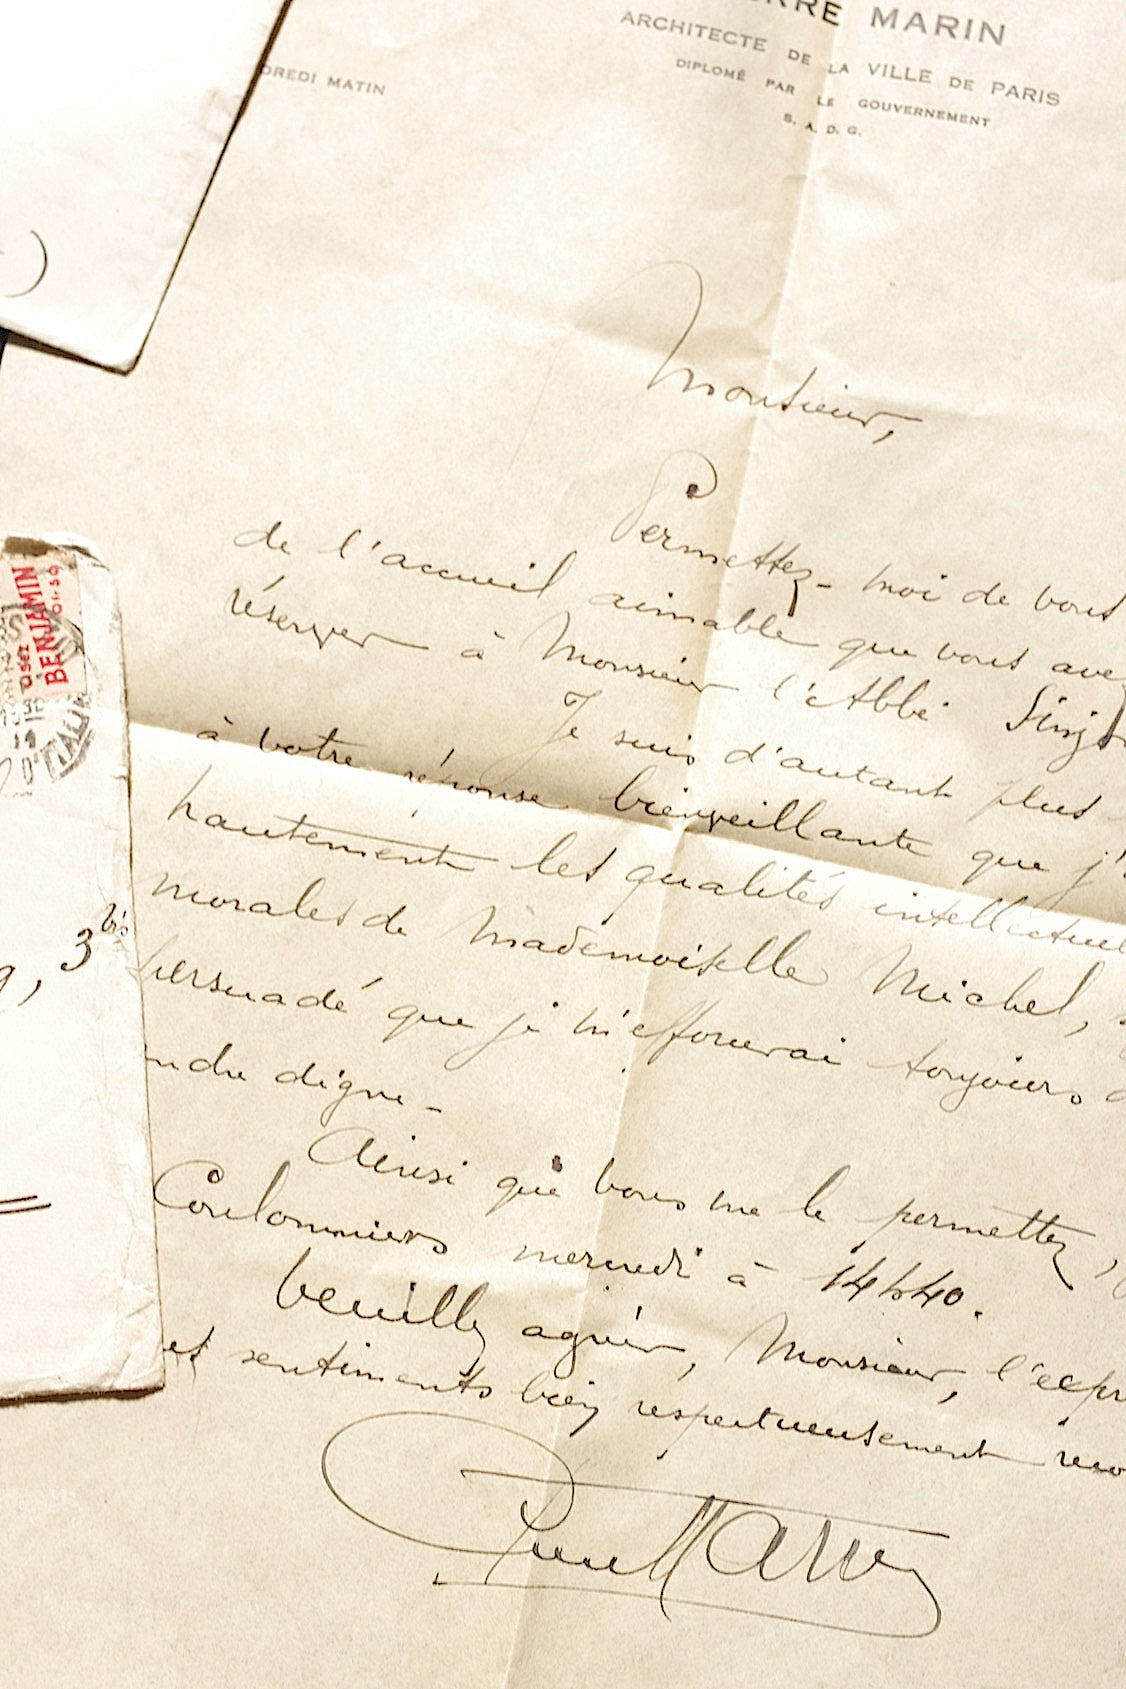 RRE MARIN
ARCHITECTE DE LA VILLE DE PARIS
DIPLOMÉ PAR LE GOUVERNEMENT
S. A. D. G.
DREDI MATIN
Monsieur,
Permettez-moi de vous
de l'accueil aimable que vous avez
réserver à Monsieur l'Abbé
Je suis d'autant plus
à votre réponse bienveillante que j'
hautement les qualités intellectuel
morales de Mademoiselle Michel,
persuadé que je m'efforcerai toujours
ndre digne-
Ainsi que vous me le permettez,
Coulommiers mercredi à 14h40.
Veuillez agréer, Monsieur, l'expr
et sentiments bien respectueusement reco
Pierre Marin
USEZ
BENJAMIN
, 3 bis